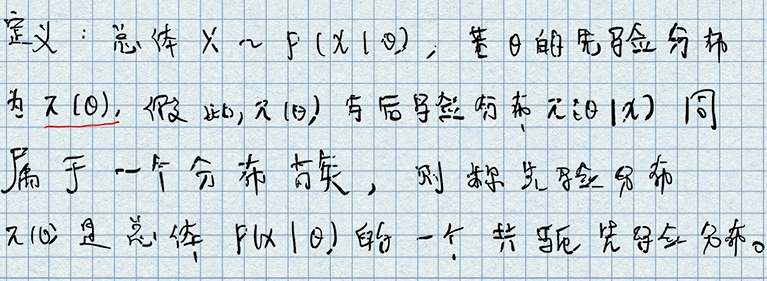 定义：总体 X ~ F(X|θ)，若θ的先验分布
为 π(θ)，假设，π(θ)与后验分布 π(θ|x) 同
属于一个分布族，则称先验分布
π(θ)是总体 F(x|θ)的一个共轭先验分布。